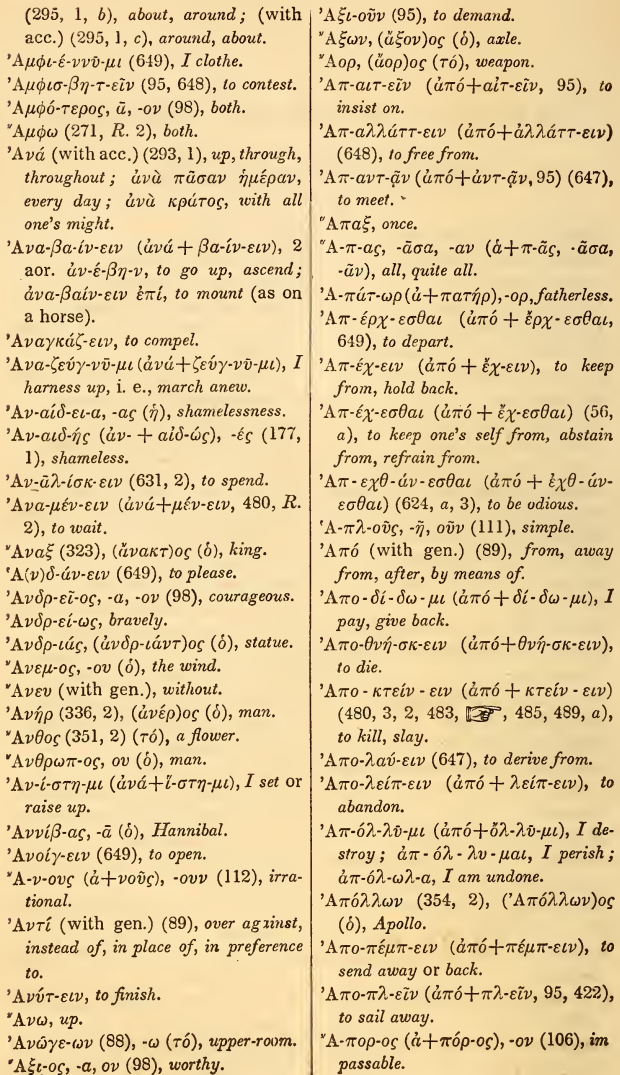 (295, 1, b), about, around; (with
acc.) (295, 1, c), around, about.
Ἀμφι-έ-ννῡ-μι (649), I clothe.
Ἀμφισ-βη-τ-εῖν (95, 648), to contest.
Ἀμφό-τερος, ᾱ, -ον (98), both.
Ἄμφω (271, R. 2), both.
Ἀνά (with acc.) (293, 1), up, through,
throughout; ἀνὰ πᾶσαν ἡμέραν,
every day; ἀνὰ κράτος, with all
one's might.
Ἀνα-βα-ίν-ειν (ἀνά + βα-ίν-ειν), 2
aor. ἀν-έ-βη-ν, to go up, ascend;
ἀνα-βαίν-ειν ἐπί, to mount (as on
a horse).
Ἀναγκάζ-ειν, to compel.
Ἀνα-ζεύγ-νῡ-μι (ἀνά+ζεύγ-νῡ-μι), I
harness up, i. e., march anew.
Ἀν-αίδ-ει-α, -ας (ἡ), shamelessness.
Ἀν-αιδ-ής (ἀν- + αἰδ-ώς), -ές (177,
1), shameless.
Ἀν-ᾱλ-ίσκ-ειν (631, 2), to spend.
Ἀνα-μέν-ειν (ἀνά+μέν-ειν, 480, R.
2), to wait.
Ἄναξ (323), (ἄνακτ)ος (ὁ), king.
Ἁ(ν)δ-άν-ειν (649), to please.
Ἀνδρ-εῖ-ος, -α, -ον (98), courageous.
Ἀνδρ-εί-ως, bravely.
Ἀνδρ-ιάς, (ἀνδρ-ιάντ)ος (ὁ), statue.
Ἄνεμ-ος, -ου (ὁ), the wind.
Ἄνευ (with gen.), without.
Ἀνήρ (336, 2), (ἀνέρ)ος (ὁ), man.
Ἄνθος (351, 2) (τό), a flower.
Ἄνθρωπ-ος, ου (ὁ), man.
Ἀν-ί-στη-μι (ἀνά+ἵ-στη-μι), I set or
raise up.
Ἀννίβ-ας, -ᾱ (ὁ), Hannibal.
Ἀνοίγ-ειν (649), to open.
Ἄ-ν-ους (ἀ+νοῦς), -ουν (112), irra-
tional.
Ἀντί (with gen.) (89), over against,
instead of, in place of, in preference
to.
Ἀνύτ-ειν, to finish.
Ἄνω, up.
Ἀνώγε-ων (88), -ω (τό), upper-room.
Ἄξι-ος, -α, ον (98), worthy.
Ἀξι-οῦν (95), to demand.
Ἄξων, (ἄξον)ος (ὁ), axle.
Ἄορ, (ἄορ)ος (τό), weapon.
Ἀπ-αιτ-εῖν (ἀπό+αἰτ-εῖν, 95), to
insist on.
Ἀπ-αλλάττ-ειν (ἀπό+ἀλλάττ-ειν)
(648), to free from.
Ἀπ-αντ-ᾷν (ἀπό+ἀντ-ᾷν, 95) (647),
to meet.
Ἅπαξ, once.
Ἅ-π-ας, -ᾶσα, -αν (ἁ+π-ᾶς, -ᾶσα,
-ᾶν), all, quite all.
Ἀ-πάτ-ωρ (ἀ+πατήρ), -ορ, fatherless.
Ἀπ-έρχ-εσθαι (ἀπό + ἔρχ-εσθαι,
649), to depart.
Ἀπ-έχ-ειν (ἀπό + ἔχ-ειν), to keep
from, hold back.
Ἀπ-έχ-εσθαι (ἀπό + ἔχ-εσθαι) (56,
a), to keep one's self from, abstain
from, refrain from.
Ἀπ-εχθ-άν-εσθαι (ἀπό + ἐχθ-άν-
εσθαι) (624, a, 3), to be odious.
Ἁ-πλ-οῦς, -ῆ, οῦν (111), simple.
Ἀπό (with gen.) (89), from, away
from, after, by means of.
Ἀπο-δί-δω-μι (ἀπό+δί-δω-μι), I
pay, give back.
Ἀπο-θνή-σκ-ειν (ἀπό+θνή-σκ-ειν),
to die.
Ἀπο-κτείν-ειν (ἀπό + κτείν-ειν)
(480, 3, 2, 483, ☞, 485, 489, a),
to kill, slay.
Ἀπο-λαύ-ειν (647), to derive from.
Ἀπο-λείπ-ειν (ἀπό + λείπ-ειν), to
abandon.
Ἀπ-όλ-λῡ-μι (ἀπό+ὄλ-λῡ-μι), I de-
stroy; ἀπ-όλ-λυ-μαι, I perish;
ἀπ-όλ-ωλ-α, I am undone.
Ἀπόλλων (354, 2), (Ἀπόλλων)ος
(ὁ), Apollo.
Ἀπο-πέμπ-ειν (ἀπό+πέμπ-ειν), to
send away or back.
Ἀπο-πλ-εῖν (ἀπό+πλ-εῖν, 95, 422),
to sail away.
Ἄ-πορ-ος (ἀ+πόρ-ος), -ον (106), im
passable.